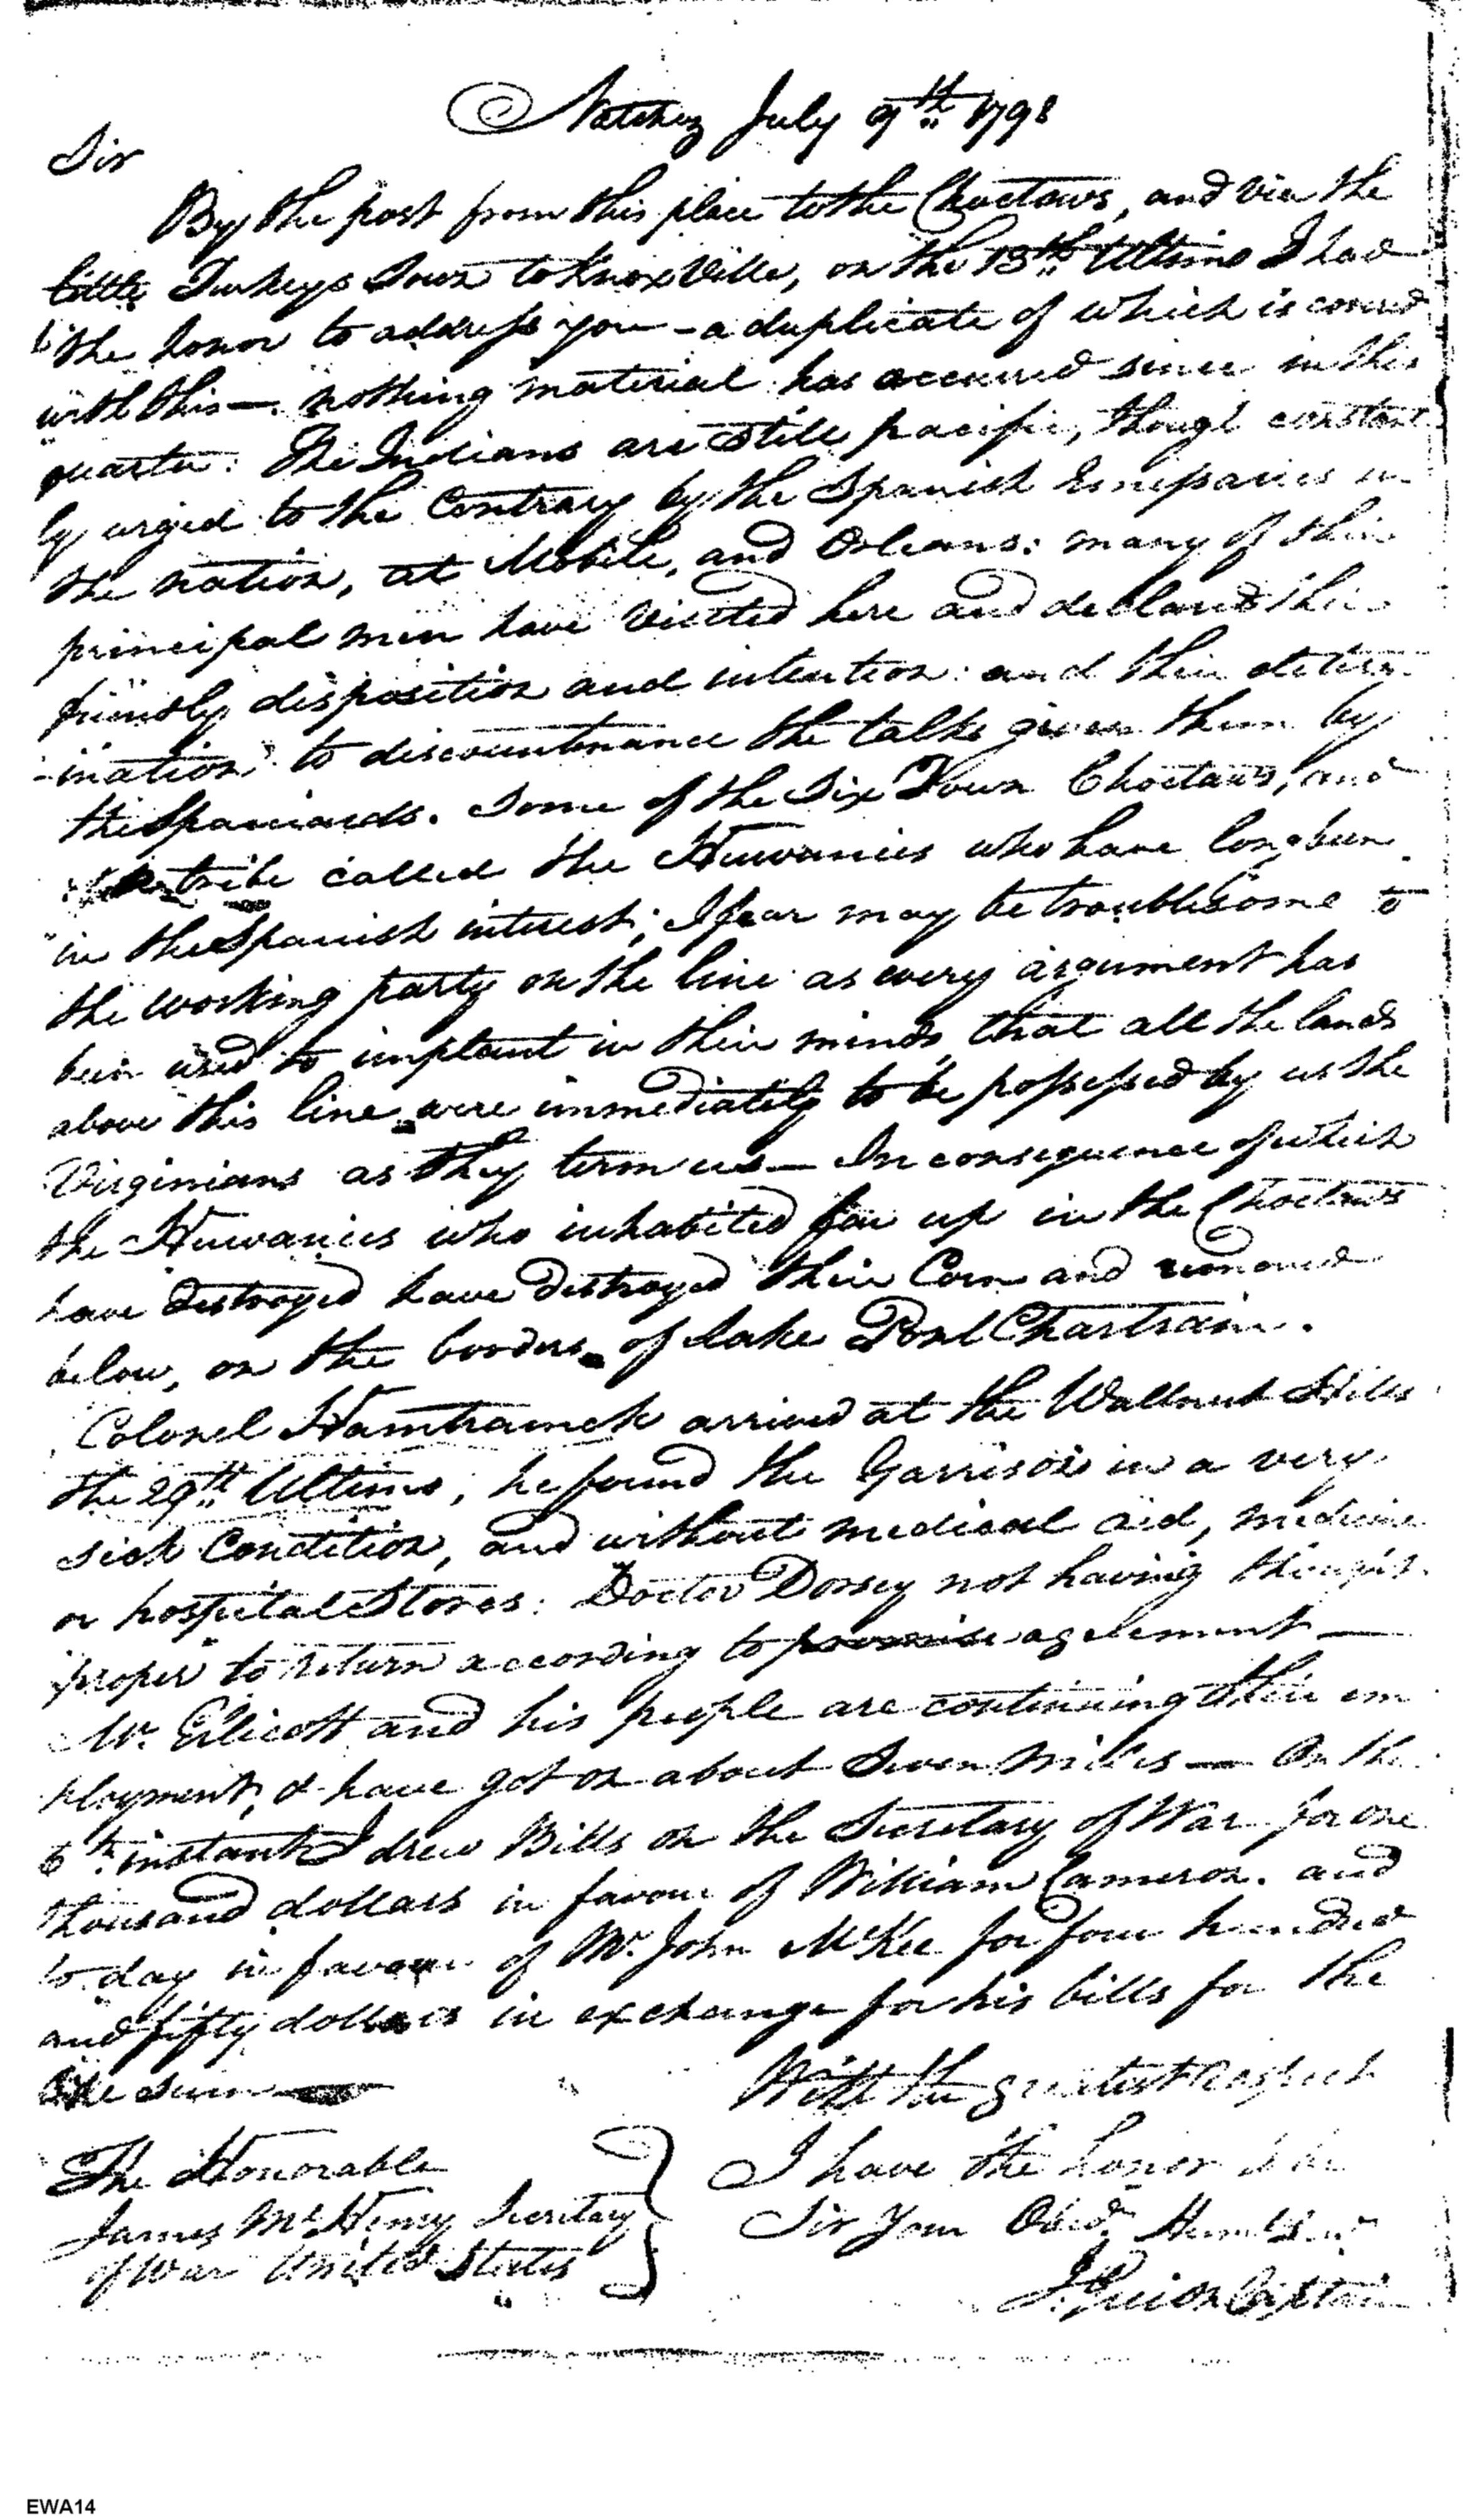 Natchez July 9th 1798
Sir
By the post from this place to the Choctaws, and via the
little Turkeys Town to Knoxville, on the 13th Ultimo I had
the honor to address you - a duplicate of which is coverd
with this —. nothing material has occurred since in this
quarter. The Indians are still pacific, though constant
ly urged to the Contrary by the Spanish Emepaires in
the nation, at Mobile, and Orleans: many of their
principal men have visited here and declared their
friendly disposition and intention: and their determ
-ination to discountenance the talks given them by
the Spaniards. Some of the Six Town Choctaws, and
tribe called the Huwanies who have long been
in the Spanish interest; I fear may be troublesome to
the working party on the line as every argument has
been used to implant in their minds that all the lands
above this line were immediately to be possessed by us the
Virginians as they term us — In consequence of which
the Huwanies who inhabited far up in the Choctaws
have destroyed have destroyed their Corn and removed
below, on the borders of Lake Pont Chartrain.
Colonel Hamtramck arrived at the Wallnut Hills
the 29th Ultimo, he found the Garrison in a very
sick Condition, and without medical aid, medicine
or hospital Stores: Doctor Dorsey not having thought
proper to return according to promise agreement —
Mr. Ellicott and his people are continuing their em
ployment, & have got on about Seven miles — On the
6th instant I drew Bills on the Secretary of War for one
thousand dollars in favour of William Cameron. and
to day in favour of Mr. John McKee for four hundred
and fifty dollars in exchange for his bills for the
like sum
With the greatest respect
I have the honor to be
Sir Your Obed. Humble
The Honorable
James McHenry Secretary
of War United States
I. Guion Captain
EWA14